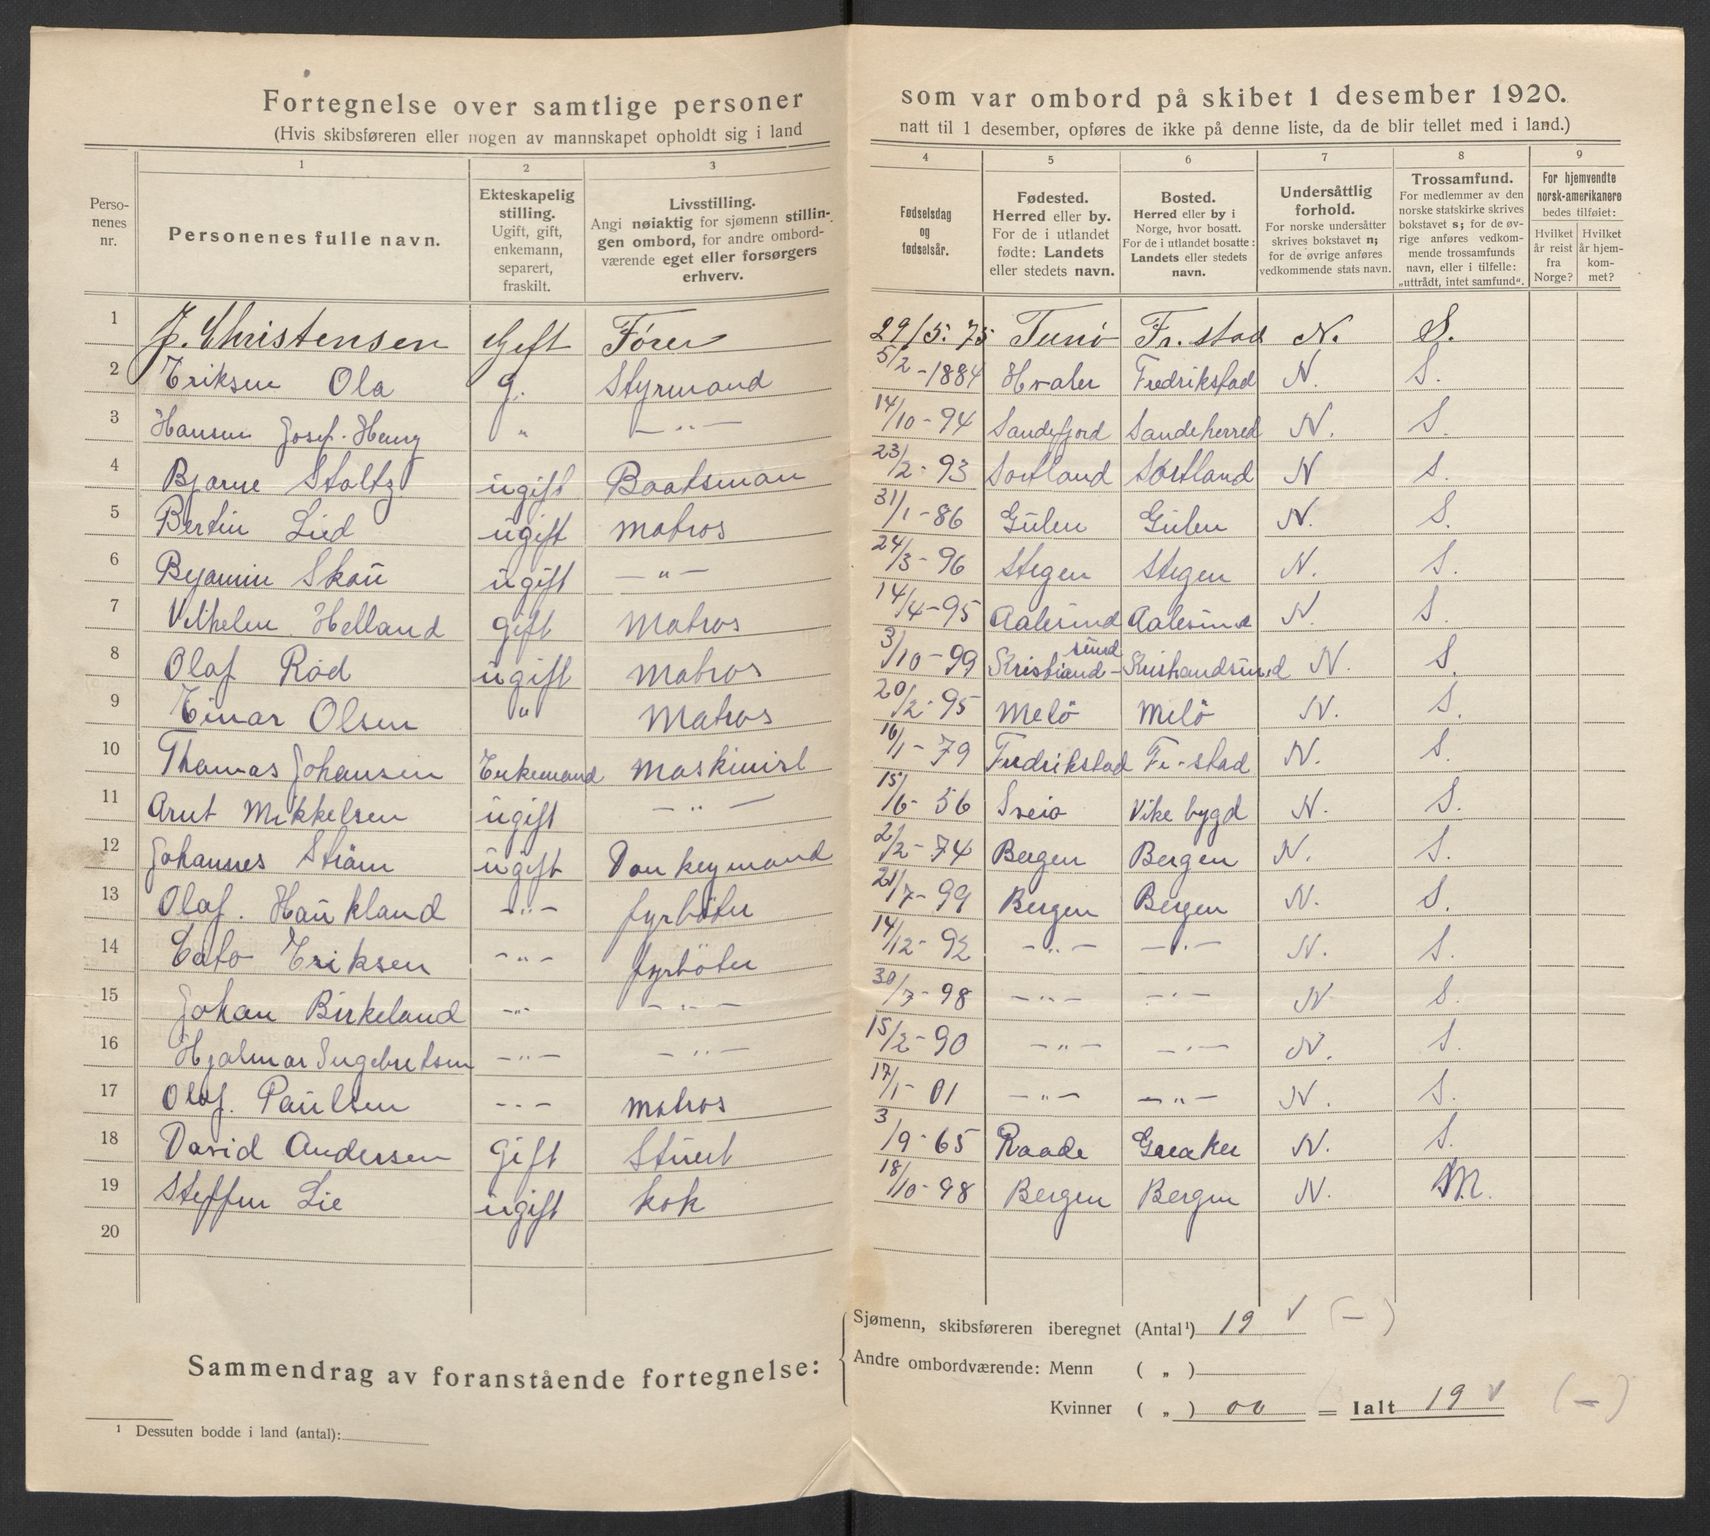 Fortegnelse over samtlige personer som var ombord på skibet 1 desember 1920.
(Hvis skibsføreren eller nogen av mannskapet opholdt sig i land natt til 1 desember, opføres de ikke på denne liste, da de blir tellet med i land.)
1 2 3 4 5 6 7 8 9
Perso-
nenes
nr.
Personenes fulle navn.
Ekteskapelig
stilling.
Ugift, gift,
enkemann,
separert,
fraskilt.
Livsstilling.
Angi nøiaktig for sjømenn stillin-
gen ombord, for andre ombord-
værende eget eller forsørgers
erhverv.
Fødselsdag
og
fødselsår.
Fødested.
Herred eller by.
For de i utlandet
fødte: Landets
eller stedets navn.
Bosted.
Herred eller by i
Norge, hvor bosatt.
For de i utlandet bosatte:
Landets eller stedets
navn.
Undersåttlig
forhold.
For norske undersåtter
skrives bokstavet n;
for de øvrige anføres
vedkommende stats navn.
Trossamfund.
For medlemmer av den
norske statskirke skrives
bokstavet s; for de øv-
rige anføres vedkom-
mende trossamfunds
navn, eller i tilfelle:
„uttrådt, intet samfund“.
For hjemvendte
norsk-amerikanere
bedes tilføiet:
Hvilket
år reist
fra
Norge?
Hvilket
år hjem-
kom-
met?
1 J. Christensen Gift Fører 29/5.-75 Tunø Fr.stad N. S.
2 Eriksen Ola g. Styrmand 5/2-1884 Hvaler Fredrikstad N. S.
3 Hansen Josef. Henry " —"— 14/10-94 Sandefjord Sandeherred N. S.
4 Bjarne Stoltz ugift Baatsman 23/2-93 Sortland Sortland N S.
5 Bertin Lied ugift matros 31/1-86 Gulen Gulen N. S.
6 Byamin Skau ugift —"— 24/3-96 Stegen Stegen N. S.
7 Vilhelm Helland gift Matros 14/4-95 Aalesund Aalesund N. S.
8 Olaf Rød ugift Matros 3/10-99 Kristiand-sund Kristiandsund N. S.
9 Einar Olsen " Matros 20/2-95 Melö Melö N. S.
10 Thomas Johansen Enkemand Maskinist 16/1-79 Fredrikstad Fr-stad N. S.
11 Arnt Mikkelsen ugift —"— 15/6-56 Sveio Vikebygd N. S.
12 Johannes Strøm ugift Donkeymand 2/2-74 Bergen Bergen N. S.
13 Olaf. Haukland —"— fyrböter 21/7-99 Bergen Bergen N. S.
14 Cato Eriksen —"— fyrböter 14/12-92 —"— —"— N. S.
15 Johan Birkeland —"— —"— 30/7-98 —"— —"— N S.
16 Hjalmar Ingebretsen —"— —"— 15/2-90 —"— —"— N. S.
17 Olaf. Paulsen —"— matros 17/1-01 —"— —"— N. S.
18 David Andersen Gift Stuert 3/9-65 Raade Greaker N. S.
19 Steffen Lie ugift kok 18/10-98 Bergen Bergen N. M.
20
Sammendrag av foranstående fortegnelse:
Sjømenn, skibsføreren iberegnet (Antal¹) 19 √ (—)
Andre ombordværende: Menn ( „ )
Kvinner ( „ ) 00 = Ialt 19 √ (—)
¹ Dessuten bodde i land (antal):